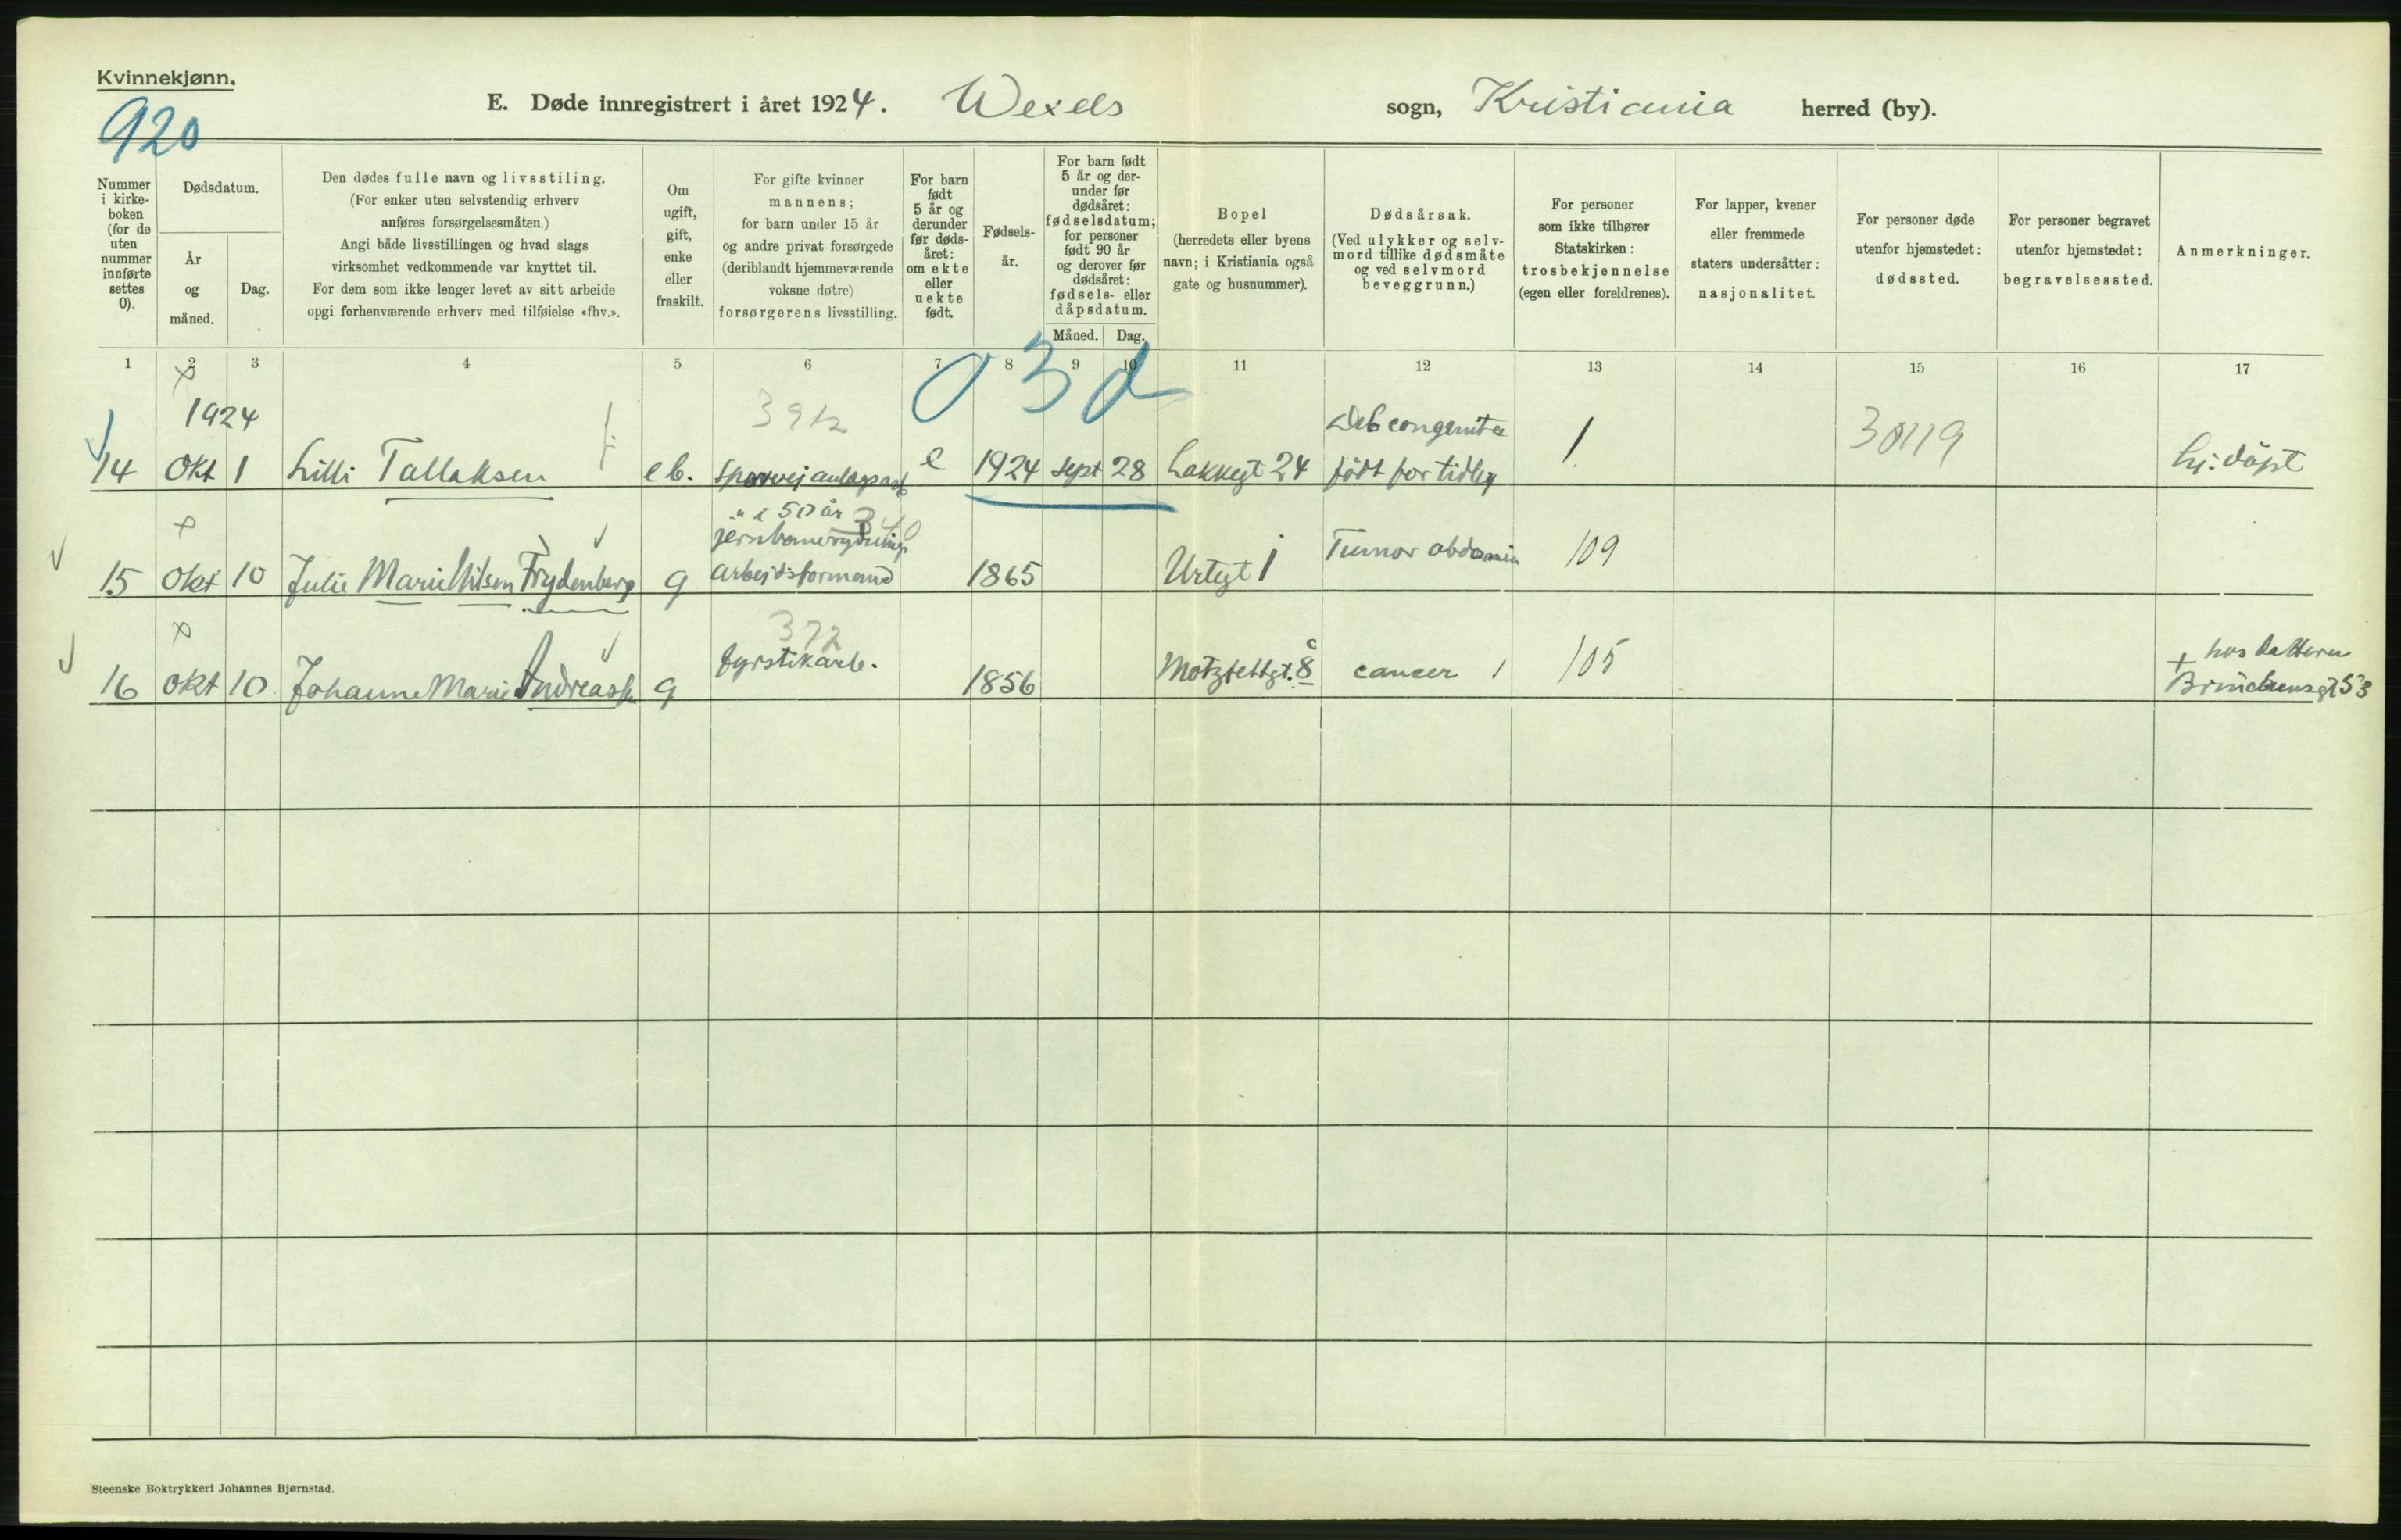 Kvinnekjønn.
920
E. Døde innregistrert i året 1924. Wexels sogn, Kristiania herred (by).
Nummer i kirke- boken (for de uten nummer innførte settes 0).
Dødsdatum.
År og måned.
Dag.
Den dødes fulle navn og livsstiling.
(For enker uten selvstendig erhverv
anføres forsørgelsesmåten.)
Angi både livsstillingen og hvad slags
virksomhet vedkommende var knyttet til.
For dem som ikke lenger levet av sitt arbeide
opgi forhenværende erhverv med tilføielse «fhv.».
Om
ugift,
gift,
enke
eller
fraskilt.
For gifte kvinner
mannens;
for barn under 15 år
og andre privat forsørgede
(deriblandt hjemmeværende
voksne døtre)
forsørgerens livsstilling.
For barn
født
5 år og
derunder
før døds-
året:
om ekte
eller
uekte
født.
Fødsels-
år.
For barn født
5 år og der-
under før
dødsåret:
fødselsdatum;
for personer
født 90 år
og derover før
dødsåret:
fødsels- eller
dåpsdatum.
Måned. Dag.
Bopel
(herredets eller byens
navn; i Kristiania også
gate og husnummer).
Dødsårsak.
(Ved ulykker og selv-
mord tillike dødsmåte
og ved selvmord
beveggrunn.)
For personer
som ikke tilhører
Statskirken:
trosbekjennelse
(egen eller foreldrenes).
For lapper, kvener
eller fremmede
staters undersåtter:
nasjonalitet.
For personer døde
utenfor hjemstedet:
dødssted.
For personer begravet
utenfor hjemstedet:
begravelsessted.
Anmerkninger.
1 2 3 4 5 6 7 8 9 10 11 12 13 14 15 16 17
03d
1924 Deb congenita 1 30119
14 Okt 1 Lilli Tallaksen eb. e 1924 Sept 28 Lakkegt 24 født for tidlig hj: døpt
" i 50 år 340
15 Okt 10 Julie Marie Nilsen Frydenberg g arbeidsformand 1865 Urtegt 1 Tumor abdomin 109
372
hos datteren
16 Okt 10 Johanne Marie Andreass. g fyrstikarb. 1856 Motzfeldtgt. 8 c cancer 105 + Brinchensgt 53
Steenske Boktrykkeri Johannes Bjørnstad.